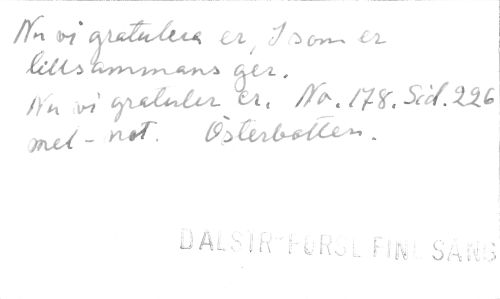 Nu vi gratulera er, I som er
tillsammans ger.
Nu vi gratuler er. No. 178. Sid. 226
mel-not. Österbotten.
DALSTR-FÖRGL FINL SÅNG